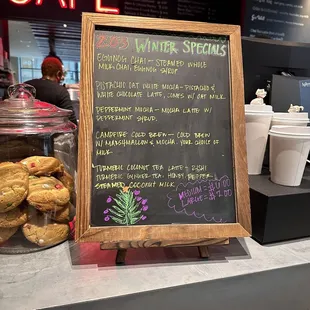 CAFE
Winter Specials
Eggnog Chai - Steamed Whole
Milk, Chai, Eggnog Syrup
Pistachio Oat White Mocha - Pistachio &
White Chocolate Latte, Comes w/ Oat Milk.
Peppermint Mocha - Mocha Latte w/
Peppermint Syrup.
Campfire Cold Brew - Cold Brew
w/ Marshmallow & Mocha, w/ Your Choice of
Milk.
Turmeric Coconut Tea Latte - Rishi
Turmeric Ginger Tea, Honey, Pepper,
Steamed Coconut Milk
Medium =
Large =